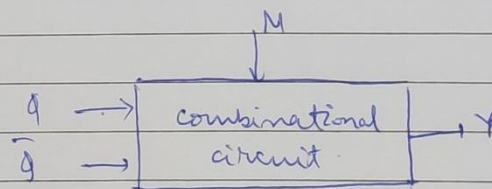 M
q
combinational
Y
q̄
circuit